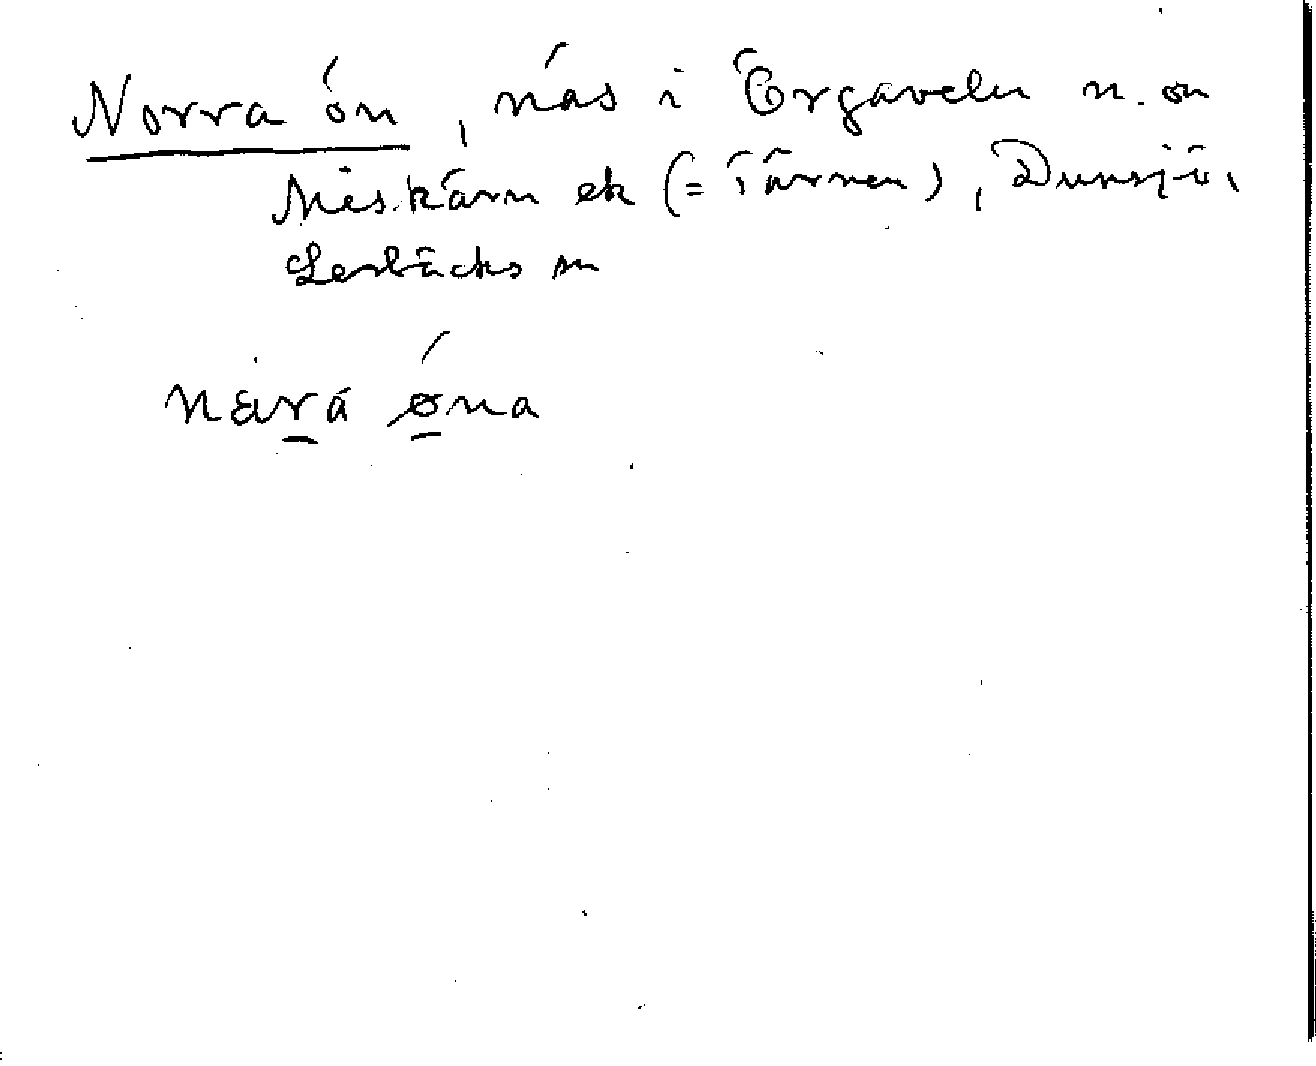 Norra ön, näs i Örgaveln n. om
Miskärn ek (= Tärnen), Dunsjö,
Lerbäcks sn